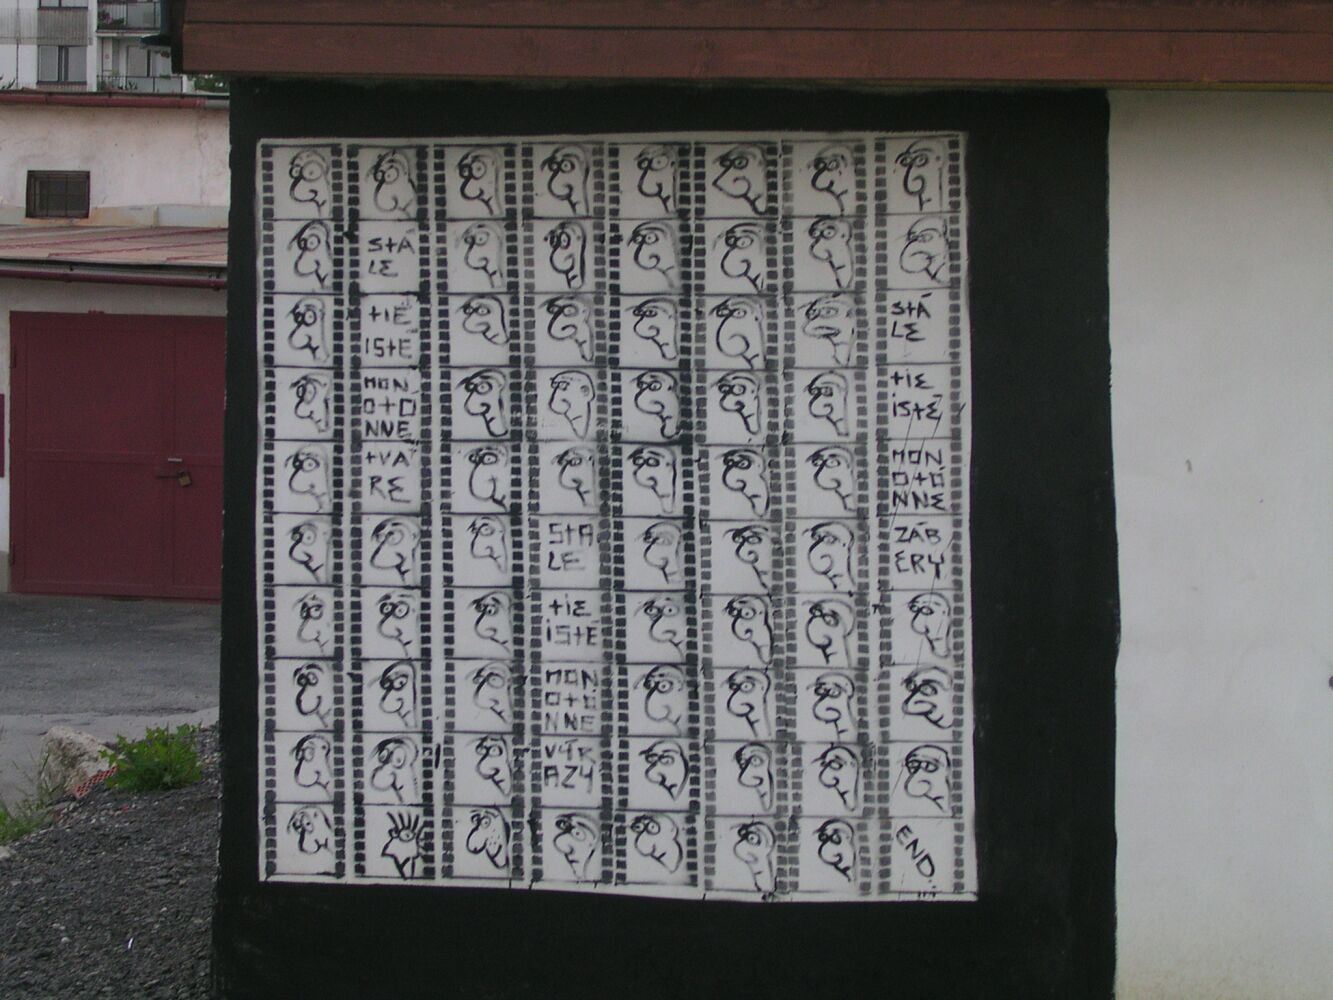 STÁ
LE
TIE
ISTÉ
MON
OTÓ
NNE
TVÁ
RE
STÁ
LE
TIE
ISTÉ
MON
OTÓ
NNE
VÝR
AZY
STÁ
LE
TIE
ISTÉ
MON
OTÓ
NNE
ZÁB
ERY
END...